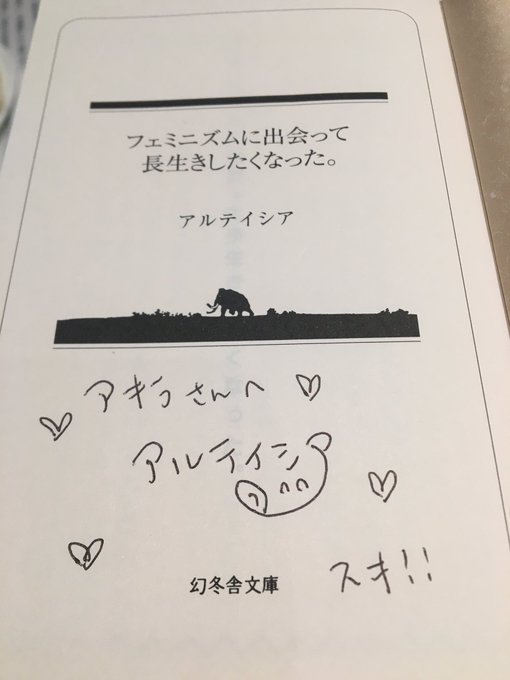 フェミニズムに出会って
長生きしたくなった。
アルテイシア
アキラさんへ
アルテイシア
幻冬舎文庫
スキ!!